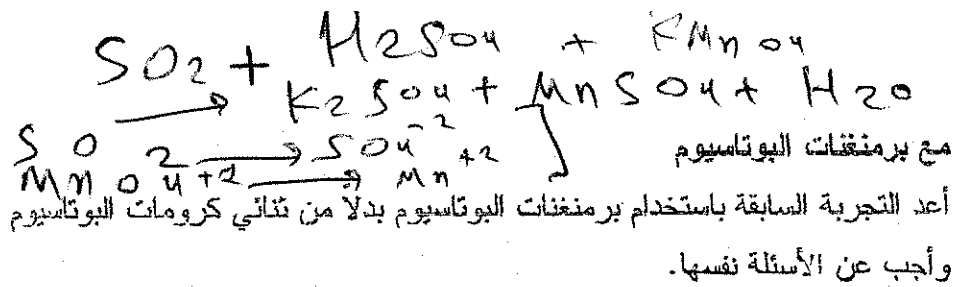 SO2 + H2SO4 + KMnO4
→ K2SO4 + MnSO4 + H2O
SO2 → SO4-2
MnO4+2 → Mn+2
مع برمنغنات البوتاسيوم
أعد التجربة السابقة باستخدام برمنغنات البوتاسيوم بدلا من ثنائي كرومات البوتاسيوم
وأجب عن الأسئلة نفسها.